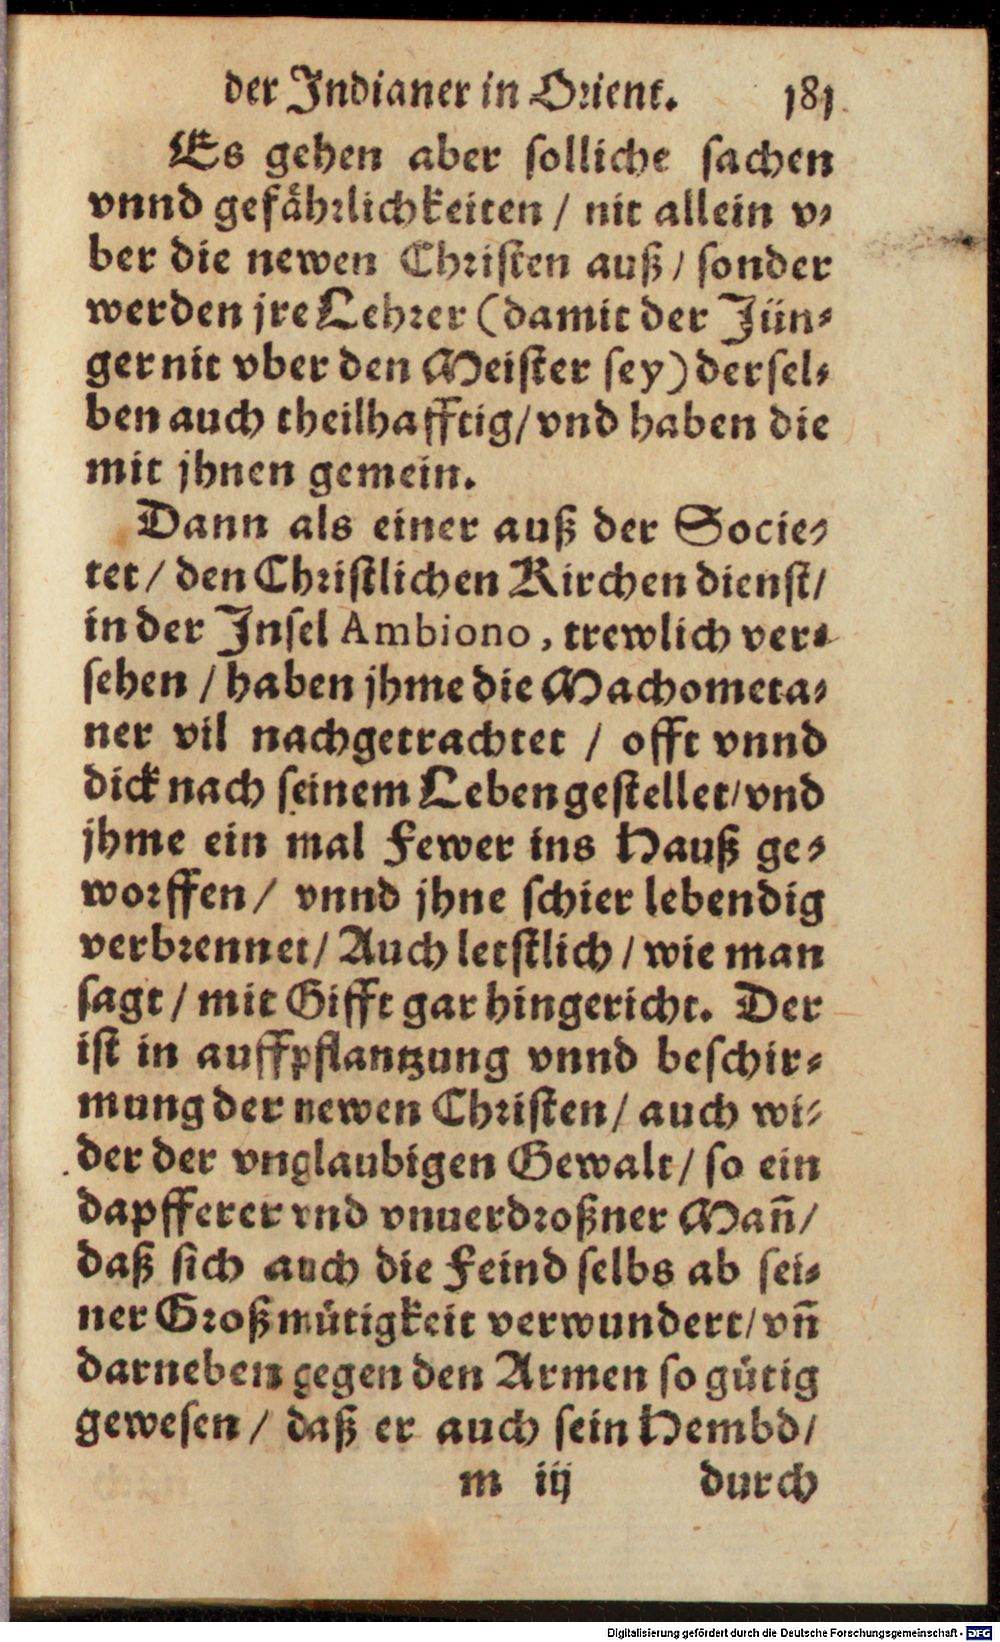 der Indianer in Orient. 181
Es gehen aber solliche sachen
vnnd gefåhrlichkeiten / nit allein v-
ber die newen Christen auß / sonder
werden jre Lehrer (damit der Jün-
ger nit vber den Meister sey) dersel-
ben auch theilhafftig / vnd haben die
mit jhnen gemein.
Dann als einer auß der Socie-
tet / den Christlichen Kirchen dienst /
in der Insel Ambiono, trewlich ver-
sehen / haben jhme die Machometa-
ner vil nachgetrachtet / offt vnnd
dick nach seinem Leben gestellet / vnd
jhme ein mal Fewer ins Hauß ge-
worffen / vnnd jhne schier lebendig
verbrennet / Auch letstlich / wie man
sagt / mit Gifft gar hingericht. Der
ist in auffpflantzung vnnd beschir-
mung der newen Christen / auch wi-
der der vnglaubigen Gewalt / so ein
dapfferer vnd vnuerdroßner Mañ /
daß sich auch die Feind selbs ab sei-
ner Großmütigkeit verwundert / vñ
darneben gegen den Armen so gütig
gewesen / daß er auch sein Hembd /
m iij durch
Digitalisierung gefördert durch die Deutsche Forschungsgemeinschaft - DFG